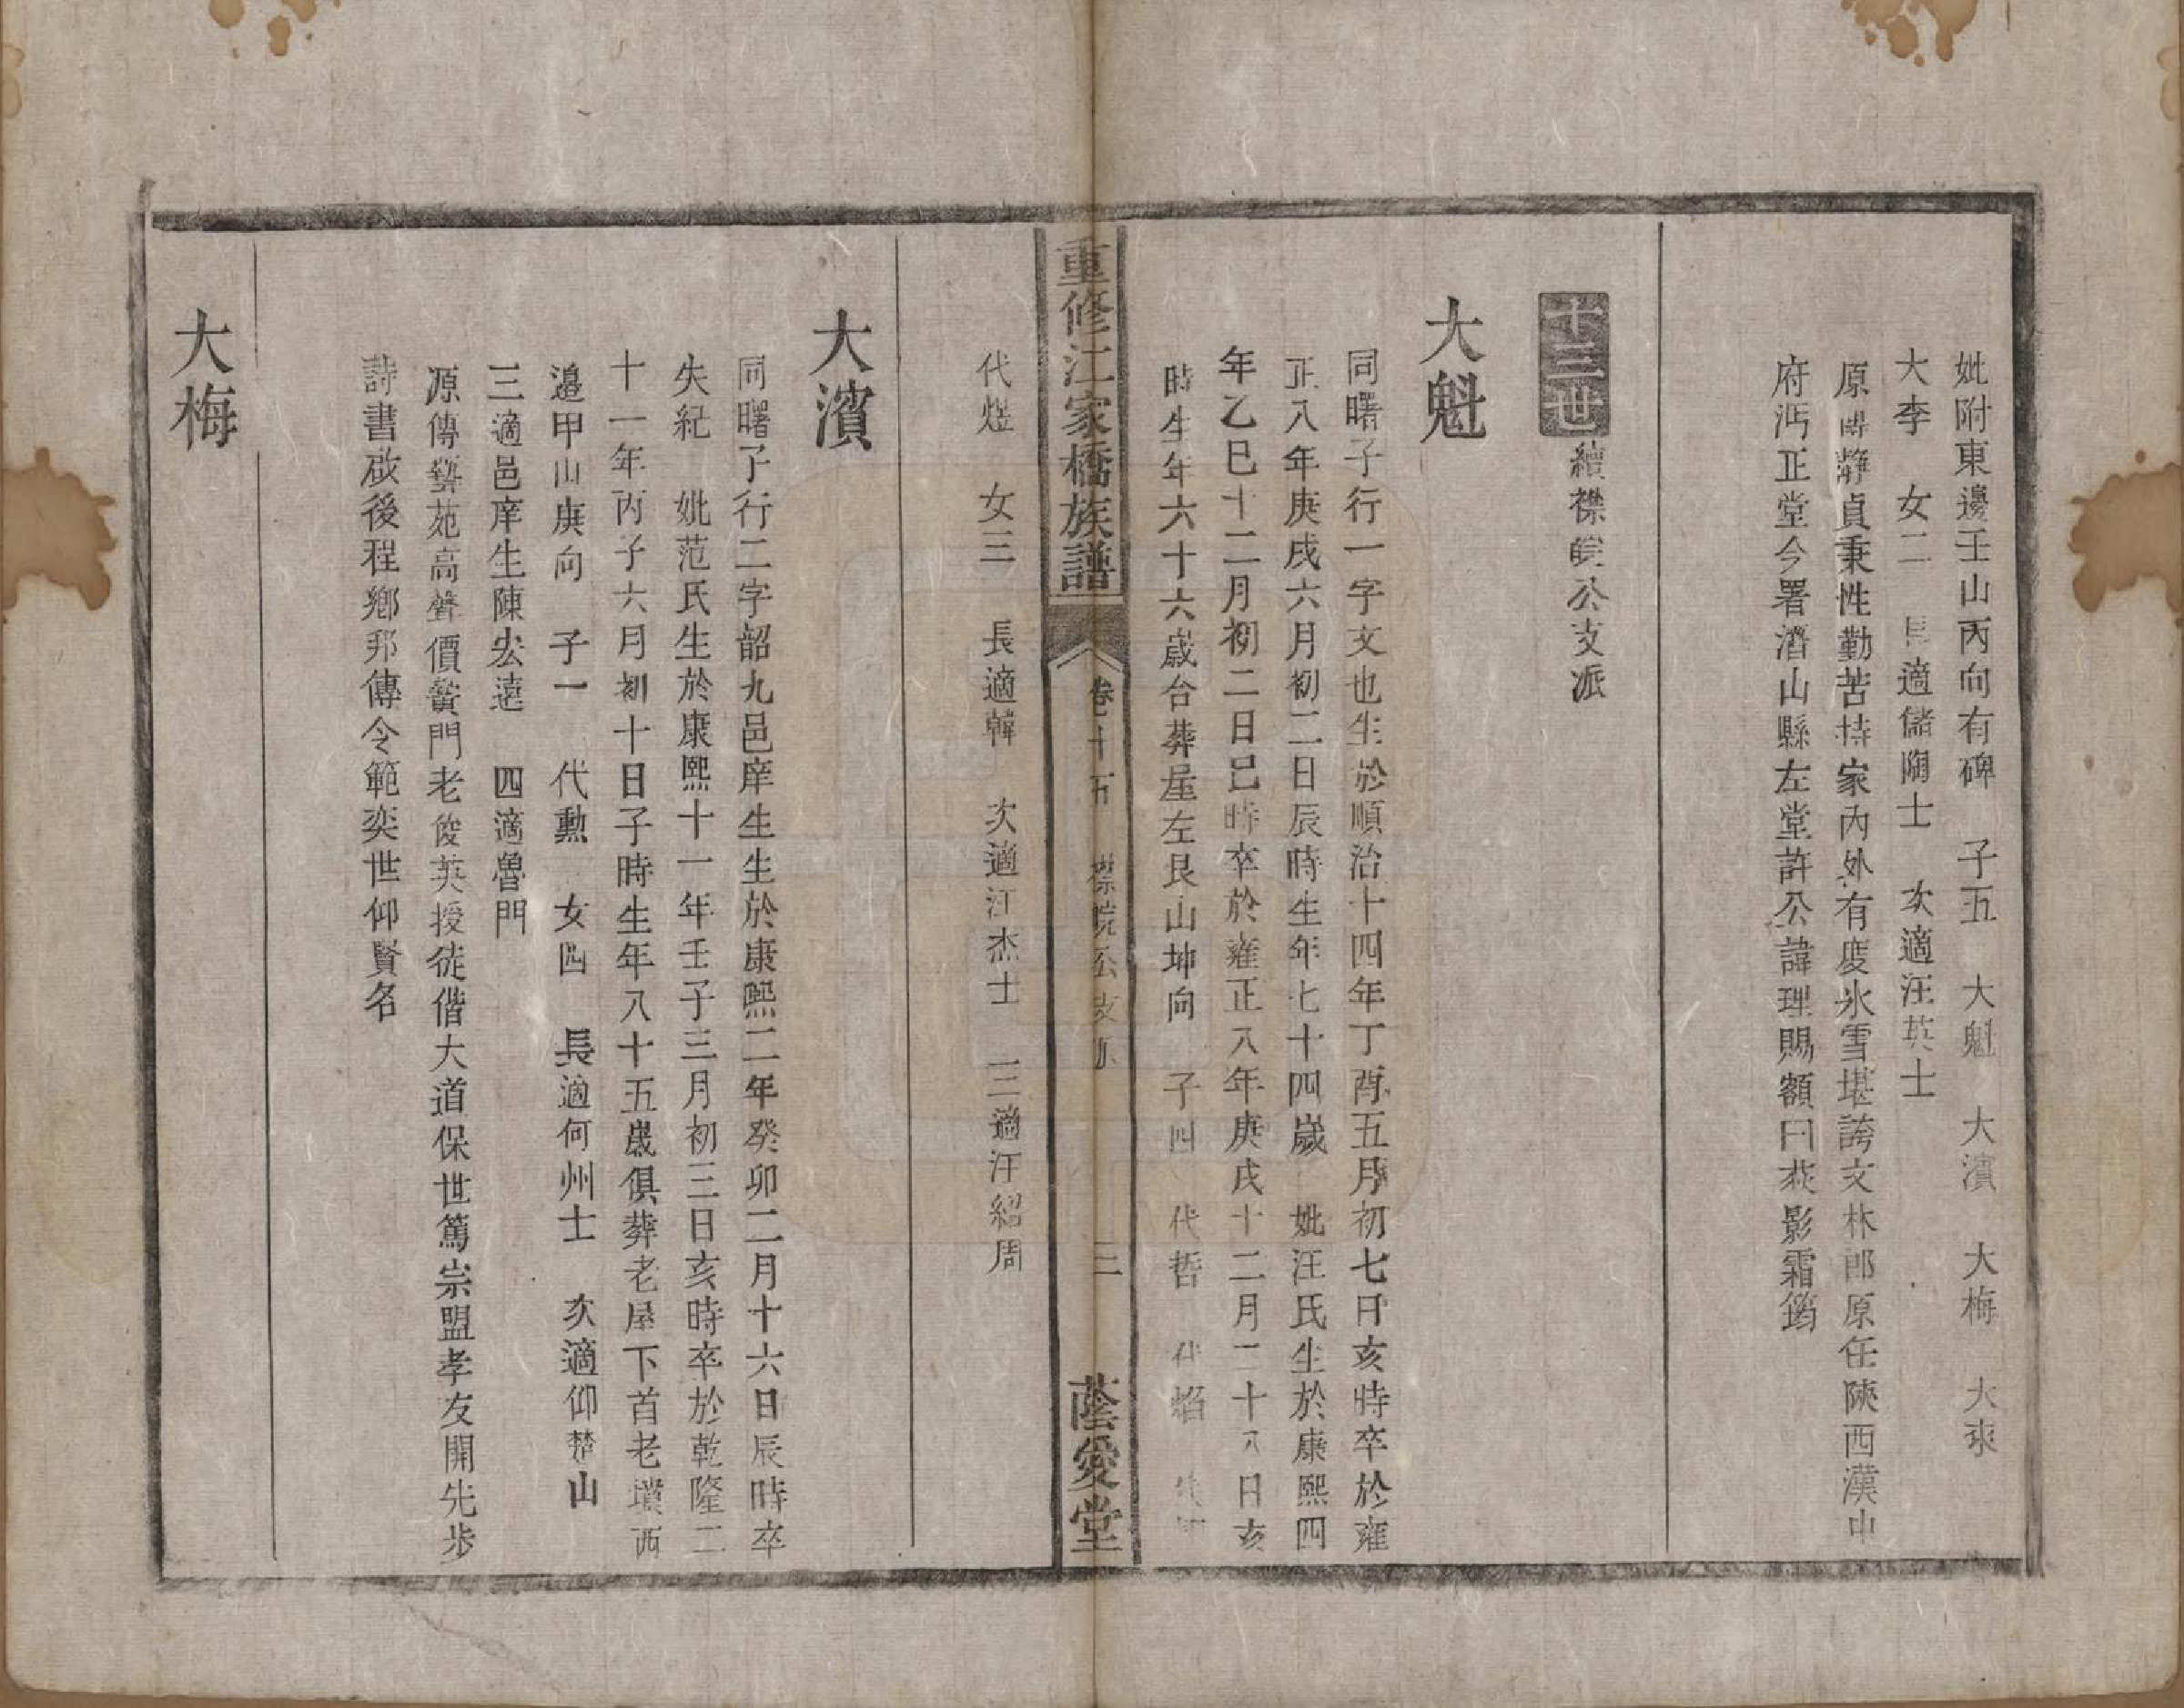 妣附東邊壬山丙向有碑　子五　大魁　大濱　大梅　大來
大李　女二　長適儲陶士　次適汪英士
原傳靜貞秉性勤苦持家內外有慶氷雪堪誇文林郎原任陝西漢中
府沔正堂今署濳山縣左堂許公諱理賜額曰萩影霜筠
十三世 續襟皖公支派
大魁
同曙子行一字文也生於順治十四年丁酉五月初七日亥時卒於雍
正八年庚戌六月初二日辰時生年七十四歲　妣汪氏生於康熙四
年乙巳十二月初二日巳時卒於雍正八年庚戌十二月二十八日亥
時生年六十六歲合葬屋左艮山坤向　子四　代哲　代焰
重修江家橋族譜　卷十五　襟皖公支派　三　蔭愛堂
代煜　女三　長適韓　次適江杰士　三適汪紹周
大濱
同曙子行二字韶九邑庠生生於康熙二年癸卯二月十六日辰時卒
失紀　妣范氏生於康熙十一年壬子三月初三日亥時卒於乾隆二
十一年丙子六月初十日子時生年八十五歲俱葬老屋下首老墳西
邉甲山庚向　子一　代勲　女四　長適何州士　次適仰楚山
三適邑庠生陳宏遠　四適魯門
源傳藝苑高聲價黌門老俊英授徒偕大道保世篤崇盟孝友開先步
詩書啟後程鄉邦傳令範奕世仰賢名
大梅